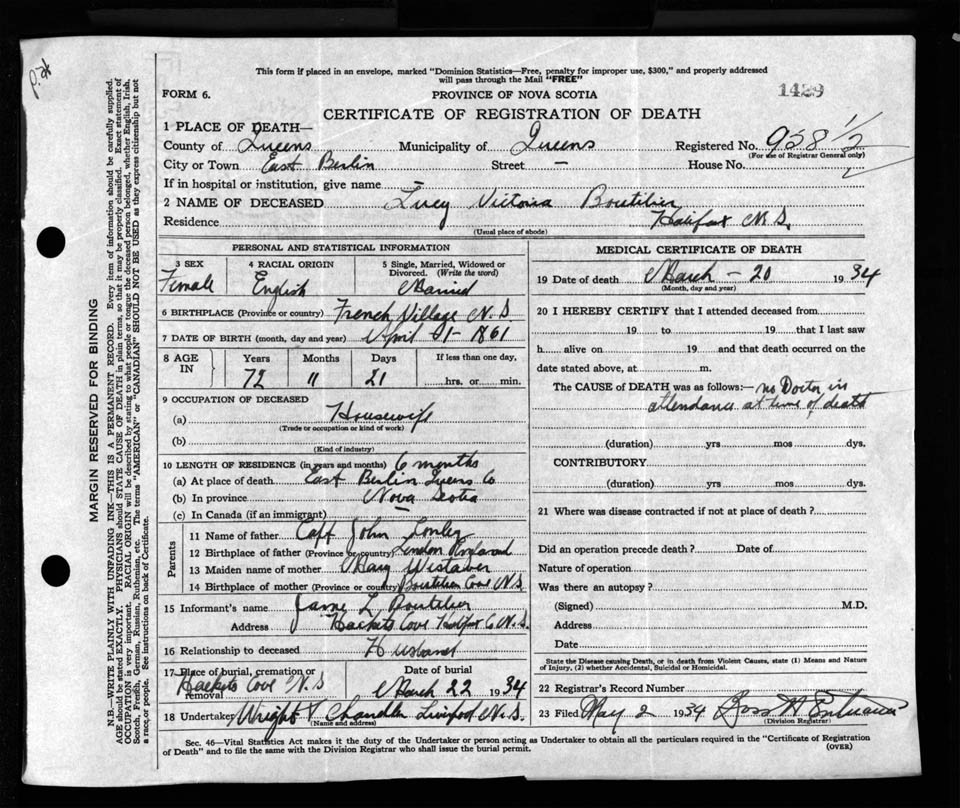 This form if placed in an envelope, marked "Dominion Statistics—Free, penalty for improper use, $300," and properly addressed
will pass through the Mail "FREE"
FORM 6.
PROVINCE OF NOVA SCOTIA
1429
CERTIFICATE OF REGISTRATION OF DEATH
1 PLACE OF DEATH—
County of Queens Municipality of Queens Registered No. 958 1/2
(For use of Registrar General only)
City or Town East Berlin Street — House No.
If in hospital or institution, give name —
2 NAME OF DECEASED Lucy Victoria Boutilier
Residence Halifax N.S.
(Usual place of abode)
PERSONAL AND STATISTICAL INFORMATION
3 SEX 4 RACIAL ORIGIN 5 Single, Married, Widowed or Divorced. (Write the word)
Female English Married
6 BIRTHPLACE (Province or country) French Village N.S
7 DATE OF BIRTH (month, day and year) April 1-1861
8 AGE IN Years Months Days If less than one day,
72 11 21 hrs. or min.
9 OCCUPATION OF DECEASED
(a) Housewife
(Trade or occupation or kind of work)
(b)
(Kind of industry)
10 LENGTH OF RESIDENCE (in years and months) 6 months
(a) At place of death East Berlin Queens Co
(b) In province Nova Scotia
(c) In Canada (if an immigrant) —
Parents
11 Name of father Capt John
12 Birthplace of father (Province or country) London England
13 Maiden name of mother Mary
14 Birthplace of mother (Province or country) Boutilier Cove N.S
15 Informant's name L Boutilier
Address Hackets Cove Halifax Co N.S.
16 Relationship to deceased Husband
17 Place of burial, cremation or removal Date of burial
Hackets Cove N.S March 22 1934
18 Undertaker Wright & Chandler Liverpool N.S.
(Name and address)
MEDICAL CERTIFICATE OF DEATH
19 Date of death March - 20 1934
(Month, day and year)
20 I HEREBY CERTIFY that I attended deceased from
19 to 19 that I last saw
h alive on 19 and that death occurred on the
date stated above, at m.
The CAUSE OF DEATH was as follows:— no Doctor in
attendance at time of death
(duration) yrs mos dys.
CONTRIBUTORY
(duration) yrs mos dys.
21 Where was disease contracted if not at place of death?
Did an operation precede death? Date of
Nature of operation
Was there an autopsy?
(Signed) M.D.
Address
Date
State the Disease causing Death, or in death from Violent Causes, state (1) Means and Nature
of Injury, (2) whether Accidental, Suicidal or Homicidal.
22 Registrar's Record Number
23 Filed May 2 1934
(Division Registrar)
Sec. 46—Vital Statistics Act makes it the duty of the Undertaker or person acting as Undertaker to obtain all the particulars required in the "Certificate of Registration
of Death" and to file the same with the Division Registrar who shall issue the burial permit.
(OVER)
MARGIN RESERVED FOR BINDING
N.B.—WRITE PLAINLY WITH UNFADING INK—THIS IS A PERMANENT RECORD. Every item of information should be carefully supplied.
AGE should be stated EXACTLY. PHYSICIANS should STATE CAUSE OF DEATH in plain terms, so that it may be properly classified. Exact statement of
OCCUPATION is very important. RACIAL ORIGIN will be described by stating to what people or tongue the deceased person belonged, whether English, Irish,
Scotch, French, German, Russian, Ruthenian, etc. The terms "AMERICAN" or "CANADIAN" SHOULD NOT BE USED as they express citizenship but not
a race or people. See instructions on back of Certificate.